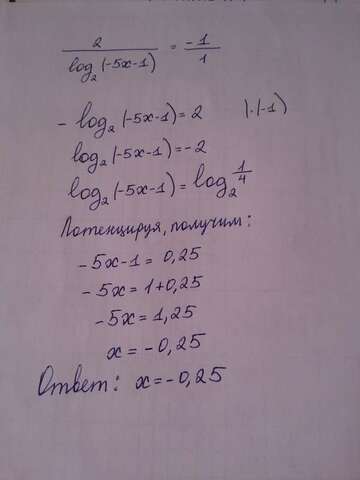 2 / log₂(-5x-1) = -1/1
- log₂(-5x-1) = 2 |·(-1)
log₂(-5x-1) = -2
log₂(-5x-1) = log₂ 1/4
Потенцируя, получим:
-5x-1 = 0,25
-5x = 1+0,25
-5x = 1,25
x = -0,25
Ответ: x = -0,25